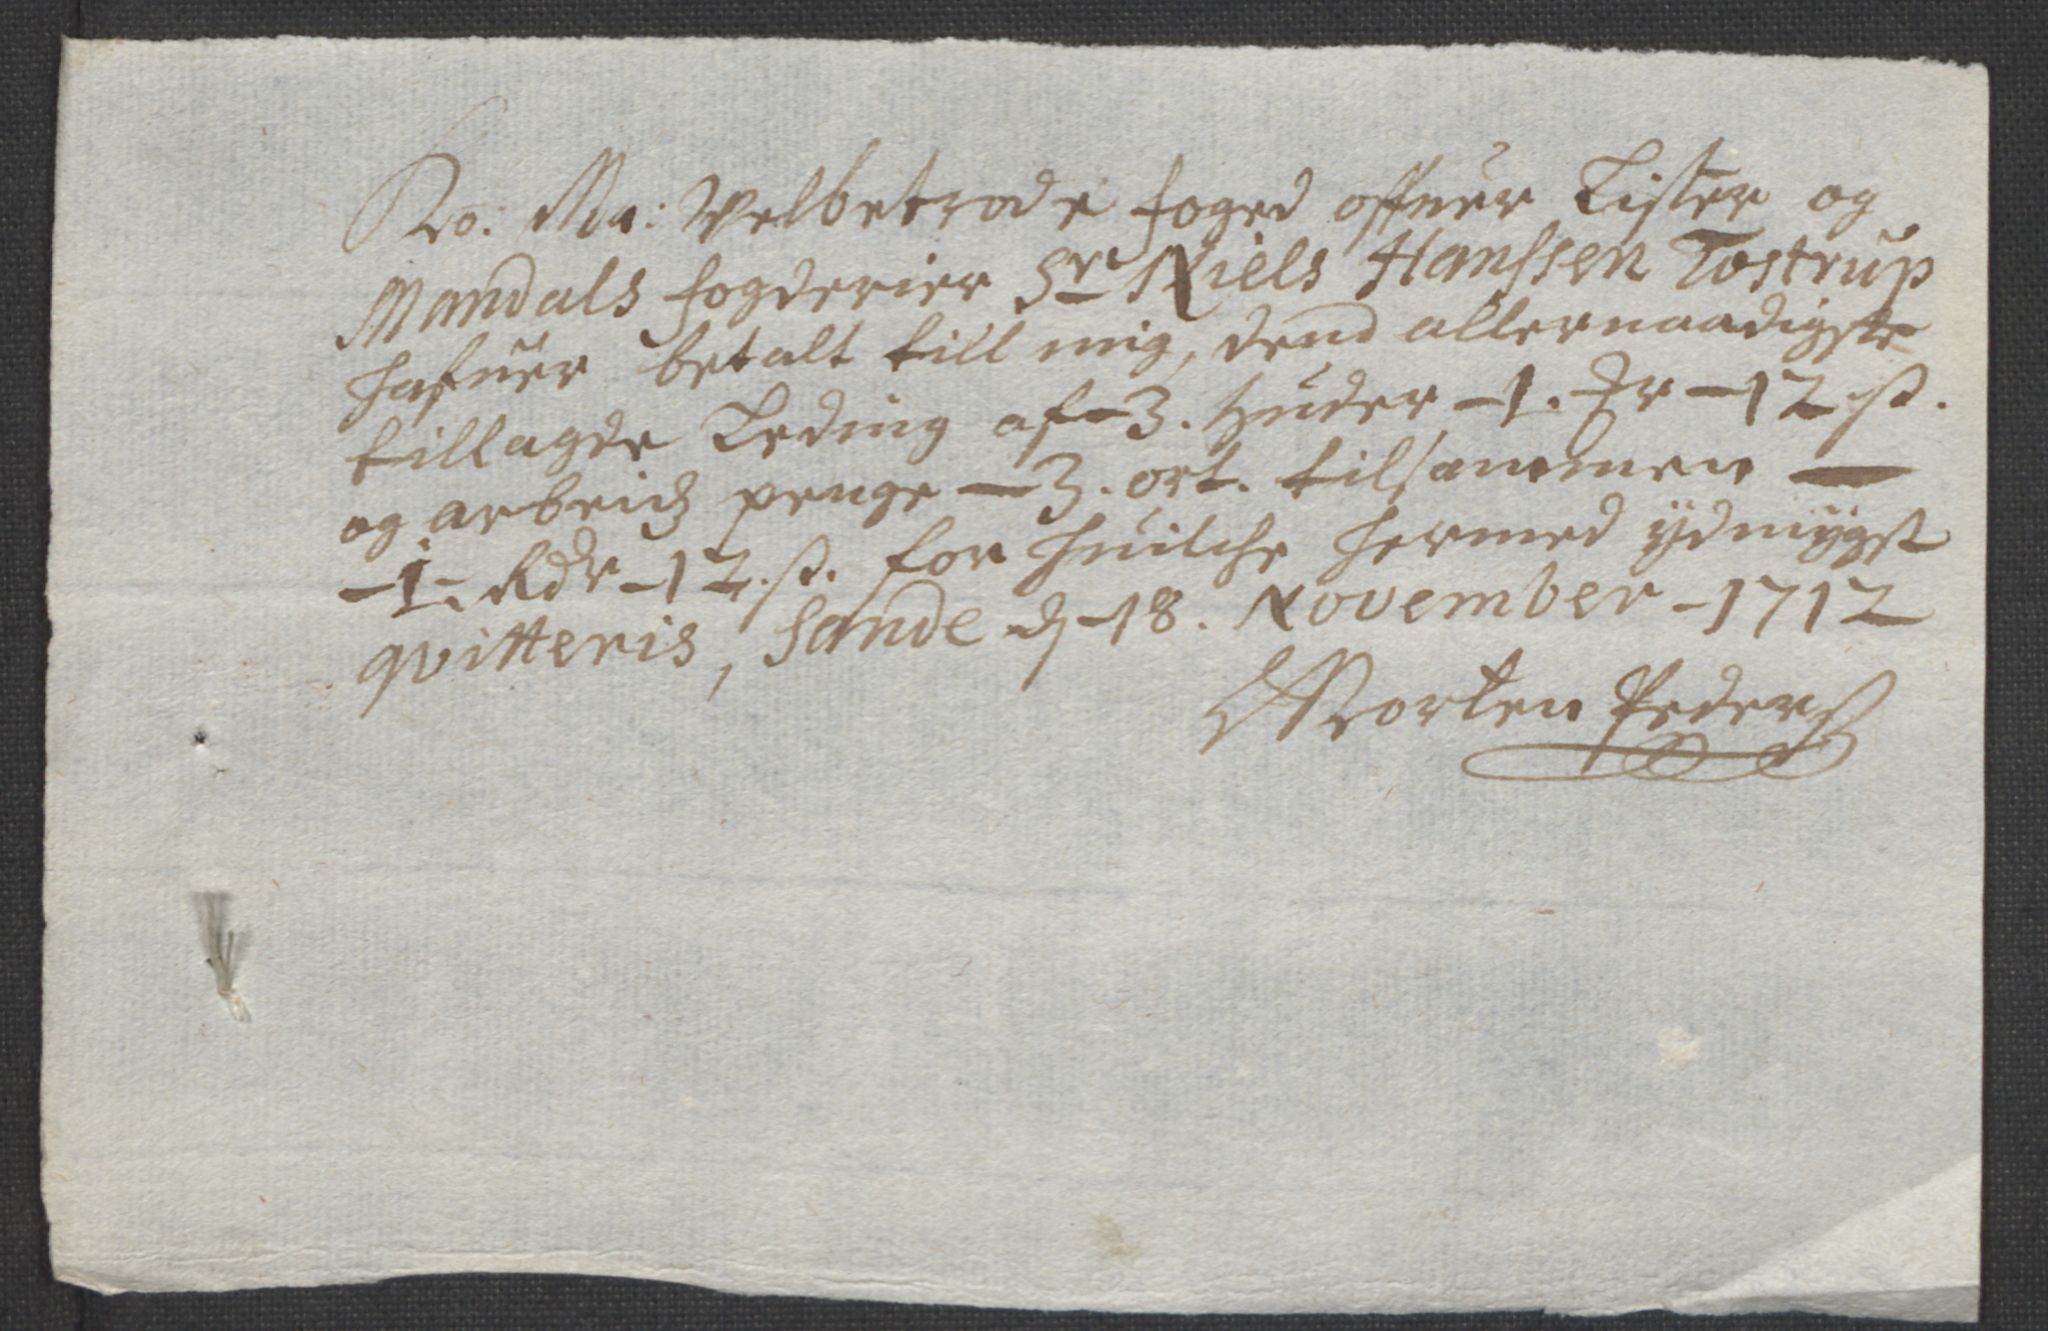 Ko: Ma: Velbetrode foged offuer Lister og
Mandals fogderier Sr. Niels Hanssen Tostrup
hafuer betalt till mig, dend allernaadigste
tillagde Leding af 3. Huder – 1. – 12 ß.
og arbeids penge – 3. ort. tilsammen —
– 1 – Rdr – 12. ß. for huilche hermed ydmygst
qvitteris, Sande d – 18. November – 1712
Morten Peders